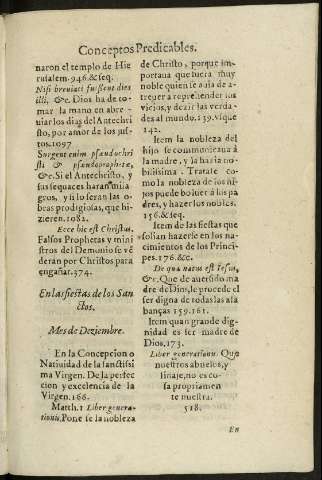 Conceptos Predicables.
naron el templo de Hie
rusalem. 946. &seq.
Nisi breuiati fuissent dies
illi, &c. Dios ha de to-
mar la mano en abre-
uiar los dias del Antechri
sto, por amor de los jus-
tos. 1097
Surgent enim pseudochri
sti & pseudoprophetæ,
&c. Si el Antechristo, y
sus sequaces haran mila
gros, y si lo seran las o-
bras prodigiosas, que hi-
zieren. 1082.
Ecce hic est Christus.
Falsos Prophetas y mini
stros del Demonio se vē
deran por Christos para
engañar. 574.
En las fiestas de los San
ctos.
Mes de Deziembre.
En la Concepcion o
Natiuidad de la sanctissi
ma Virgen. De la perfec
cion y excelencia de la
Virgen. 166.
Matth. 1 Liber genera-
tionis. Pone se la nobleza
de Christo, porque im-
portaua que fuera muy
noble quien se auia de a-
treuer a reprehender los
vicios, y dezir las verda-
des al mundo. 139. vsque
142.
Item la nobleza del
hijo se communicaua à
la madre, y la haria no-
bilissima. Tratase como
la nobleza de los hi-
jos puede boluer à los pa
dres, y hazerlos nobles.
156. &seq.
Item de las fiestas que
solian hazerle en los na-
cimientos de los Princi-
pes. 176. &c.
De qua natus est Iesus,
&c. Que de auer sido ma
dre de Dios, le procede el
ser digna de todas las ala
banças 159. 161.
Item quan grande dig-
nidad es ser madre de
Dios, 173.
Liber generationis. Que
nuestros abuelos, y
linaje, no es co-
sa propriamen
te nuestra.
518.
En